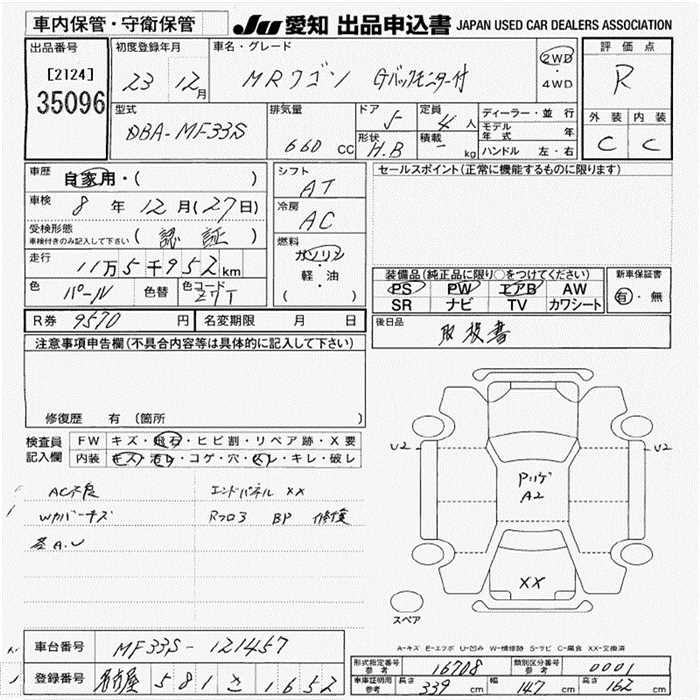 車内保管・守衛保管
JU 愛知 出品申込書 JAPAN USED CAR DEALERS ASSOCIATION
出品番号
[2124]
35096
初度登録年月
23 12月
車名・グレード
MRワゴン Gバックモニター付
2WD
・
4WD
評価点
R
外装 内装
C C
型式
DBA-MF33S
排気量
660 cc
ドア
5
定員
4 人
形状
H.B
積載
- kg
ディーラー・並行
モデル年式 年
ハンドル 左・右
車歴
自家用・( )
車検
8 年 12 月(27日)
受検形態
車検付きのみ記入して下さい
( 認証 )
走行
11万5千952km
色
パール
色替
色コード
Z7T
シフト
AT
冷房
AC
燃料
ガソリン
・
軽・油
( )
セールスポイント(正常に機能するものに限ります)
装備品(純正品に限り○をつけてください)
PS PW エアB AW
SR ナビ TV カワシート
新車保証書
有・無
R券 9570 円
名変期限 月 日
後日品
取扱書
注意事項申告欄(不具合内容等は具体的に記入して下さい)
修復歴 有(箇所 )
検査員
記入欄
FW キズ・飛石・ヒビ割・リペア跡・X要
内装 キズ・汚レ・コゲ・穴・ビレ・キレ・破レ
AC不良
Wカバーキズ
エンドパネル XX
Rフロア BP 修復
U2
U2
Pリゲ
A2
XX
スペア
A-キズ E-エクボ U-凹み W-補修跡 S-サビ C-腐食 XX-交換済
車台番号 MF33S-121457
登録番号 名古屋 581 さ 1652
形式指定番号
参考
16708
類別区分番号
参考
0001
車庫証明用
参考
長さ 339 cm
幅 147 cm
高さ 162 cm